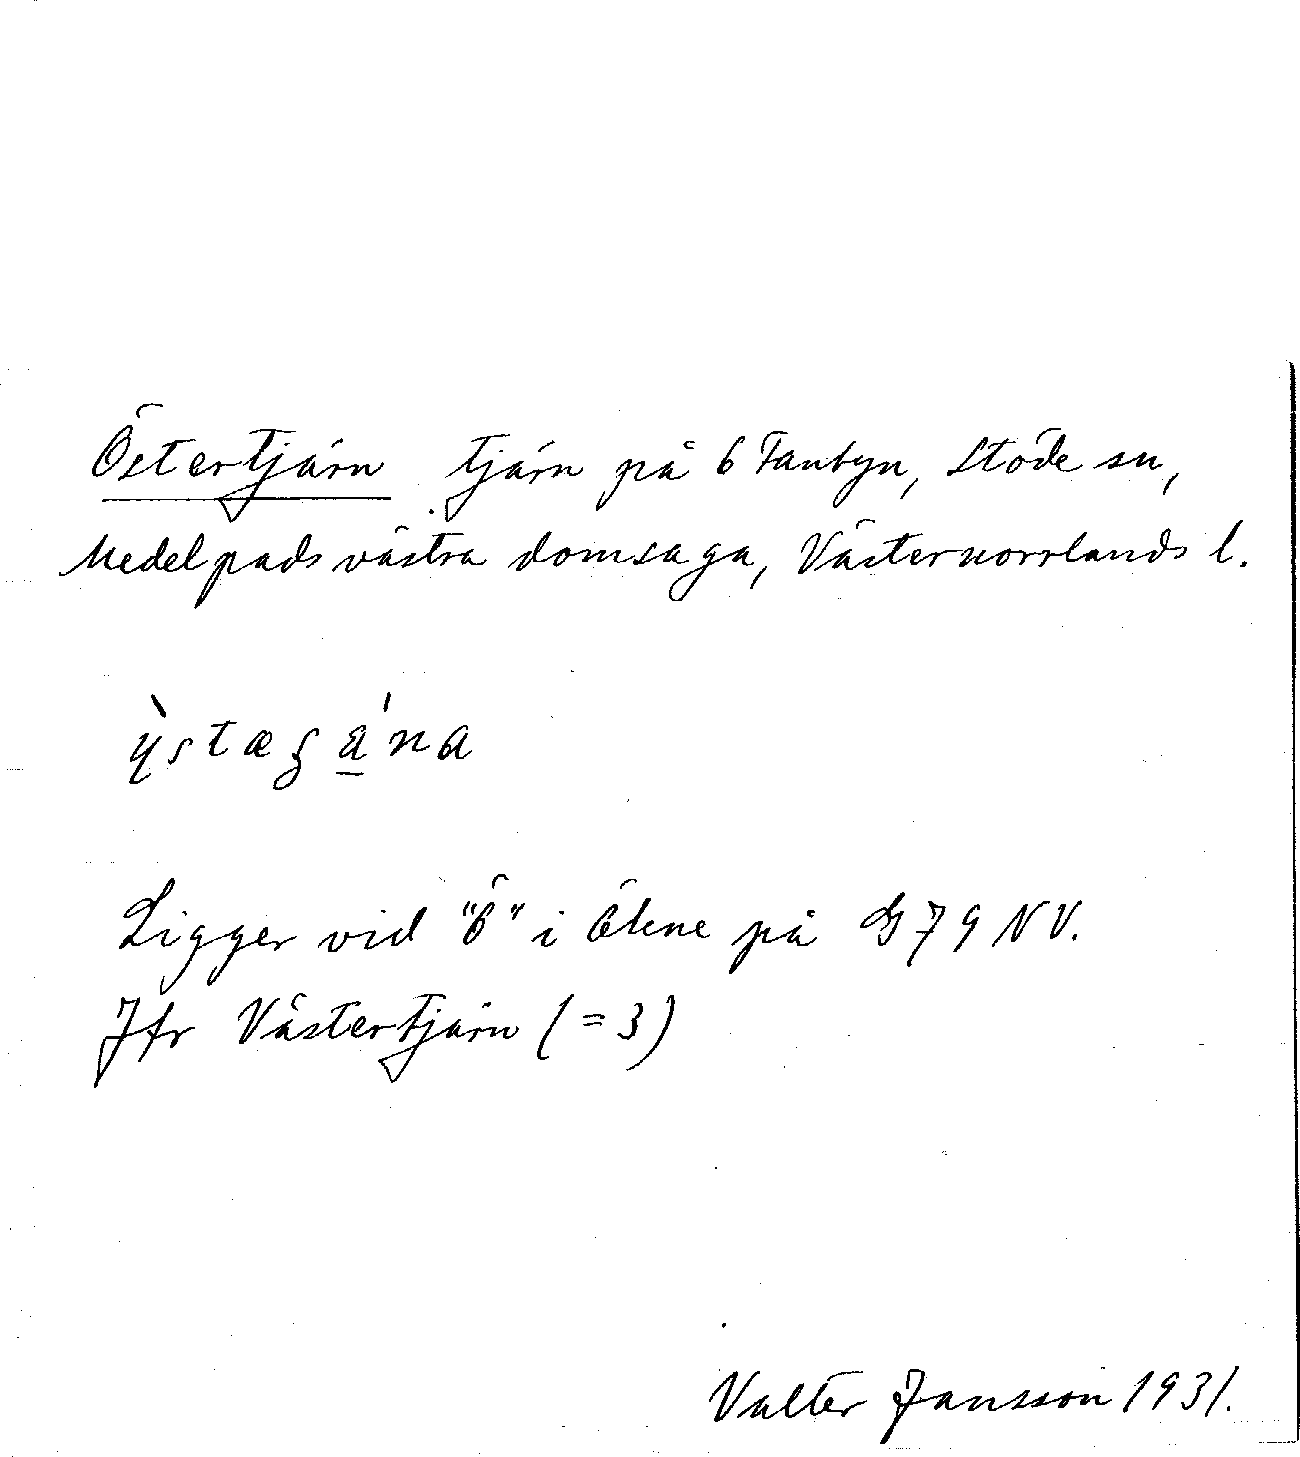 Östertjärn tjärn på 6 Tanbyn, Stöde sn,
Medelpads västra domsaga, Västernorrlands l.
Ligger vid "Ö" i Ölene på G 79 NV.
Jfr Västertjärn (=3)
Valter Jansson 1931.